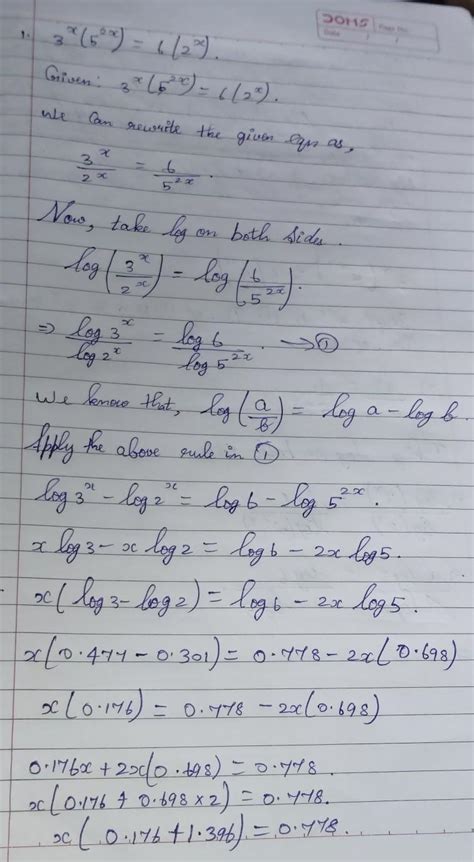 DOMS
Page No.
Date / /
1. 3^x (5^{2x}) = 6(2^x).
Given: 3^x (5^{2x}) = 6(2^x).
We can rewrite the given eqn as,
3^x / 2^x = 6 / 5^{2x}.
Now, take log on both sides.
log(3^x / 2^x) = log(6 / 5^{2x}).
⇒ log 3^x / log 2^x = log 6 / log 5^{2x} → ①
We know that, log(a/b) = log a - log b.
Apply the above rule in ①
log 3^x - log 2^x = log 6 - log 5^{2x}.
x log 3 - x log 2 = log 6 - 2x log 5.
x(log 3 - log 2) = log 6 - 2x log 5.
x(0.477 - 0.301) = 0.778 - 2x(0.698)
x(0.176) = 0.778 - 2x(0.698)
0.176x + 2x(0.698) = 0.778.
x(0.176 + 0.698 × 2) = 0.778.
x(0.176 + 1.396) = 0.778.